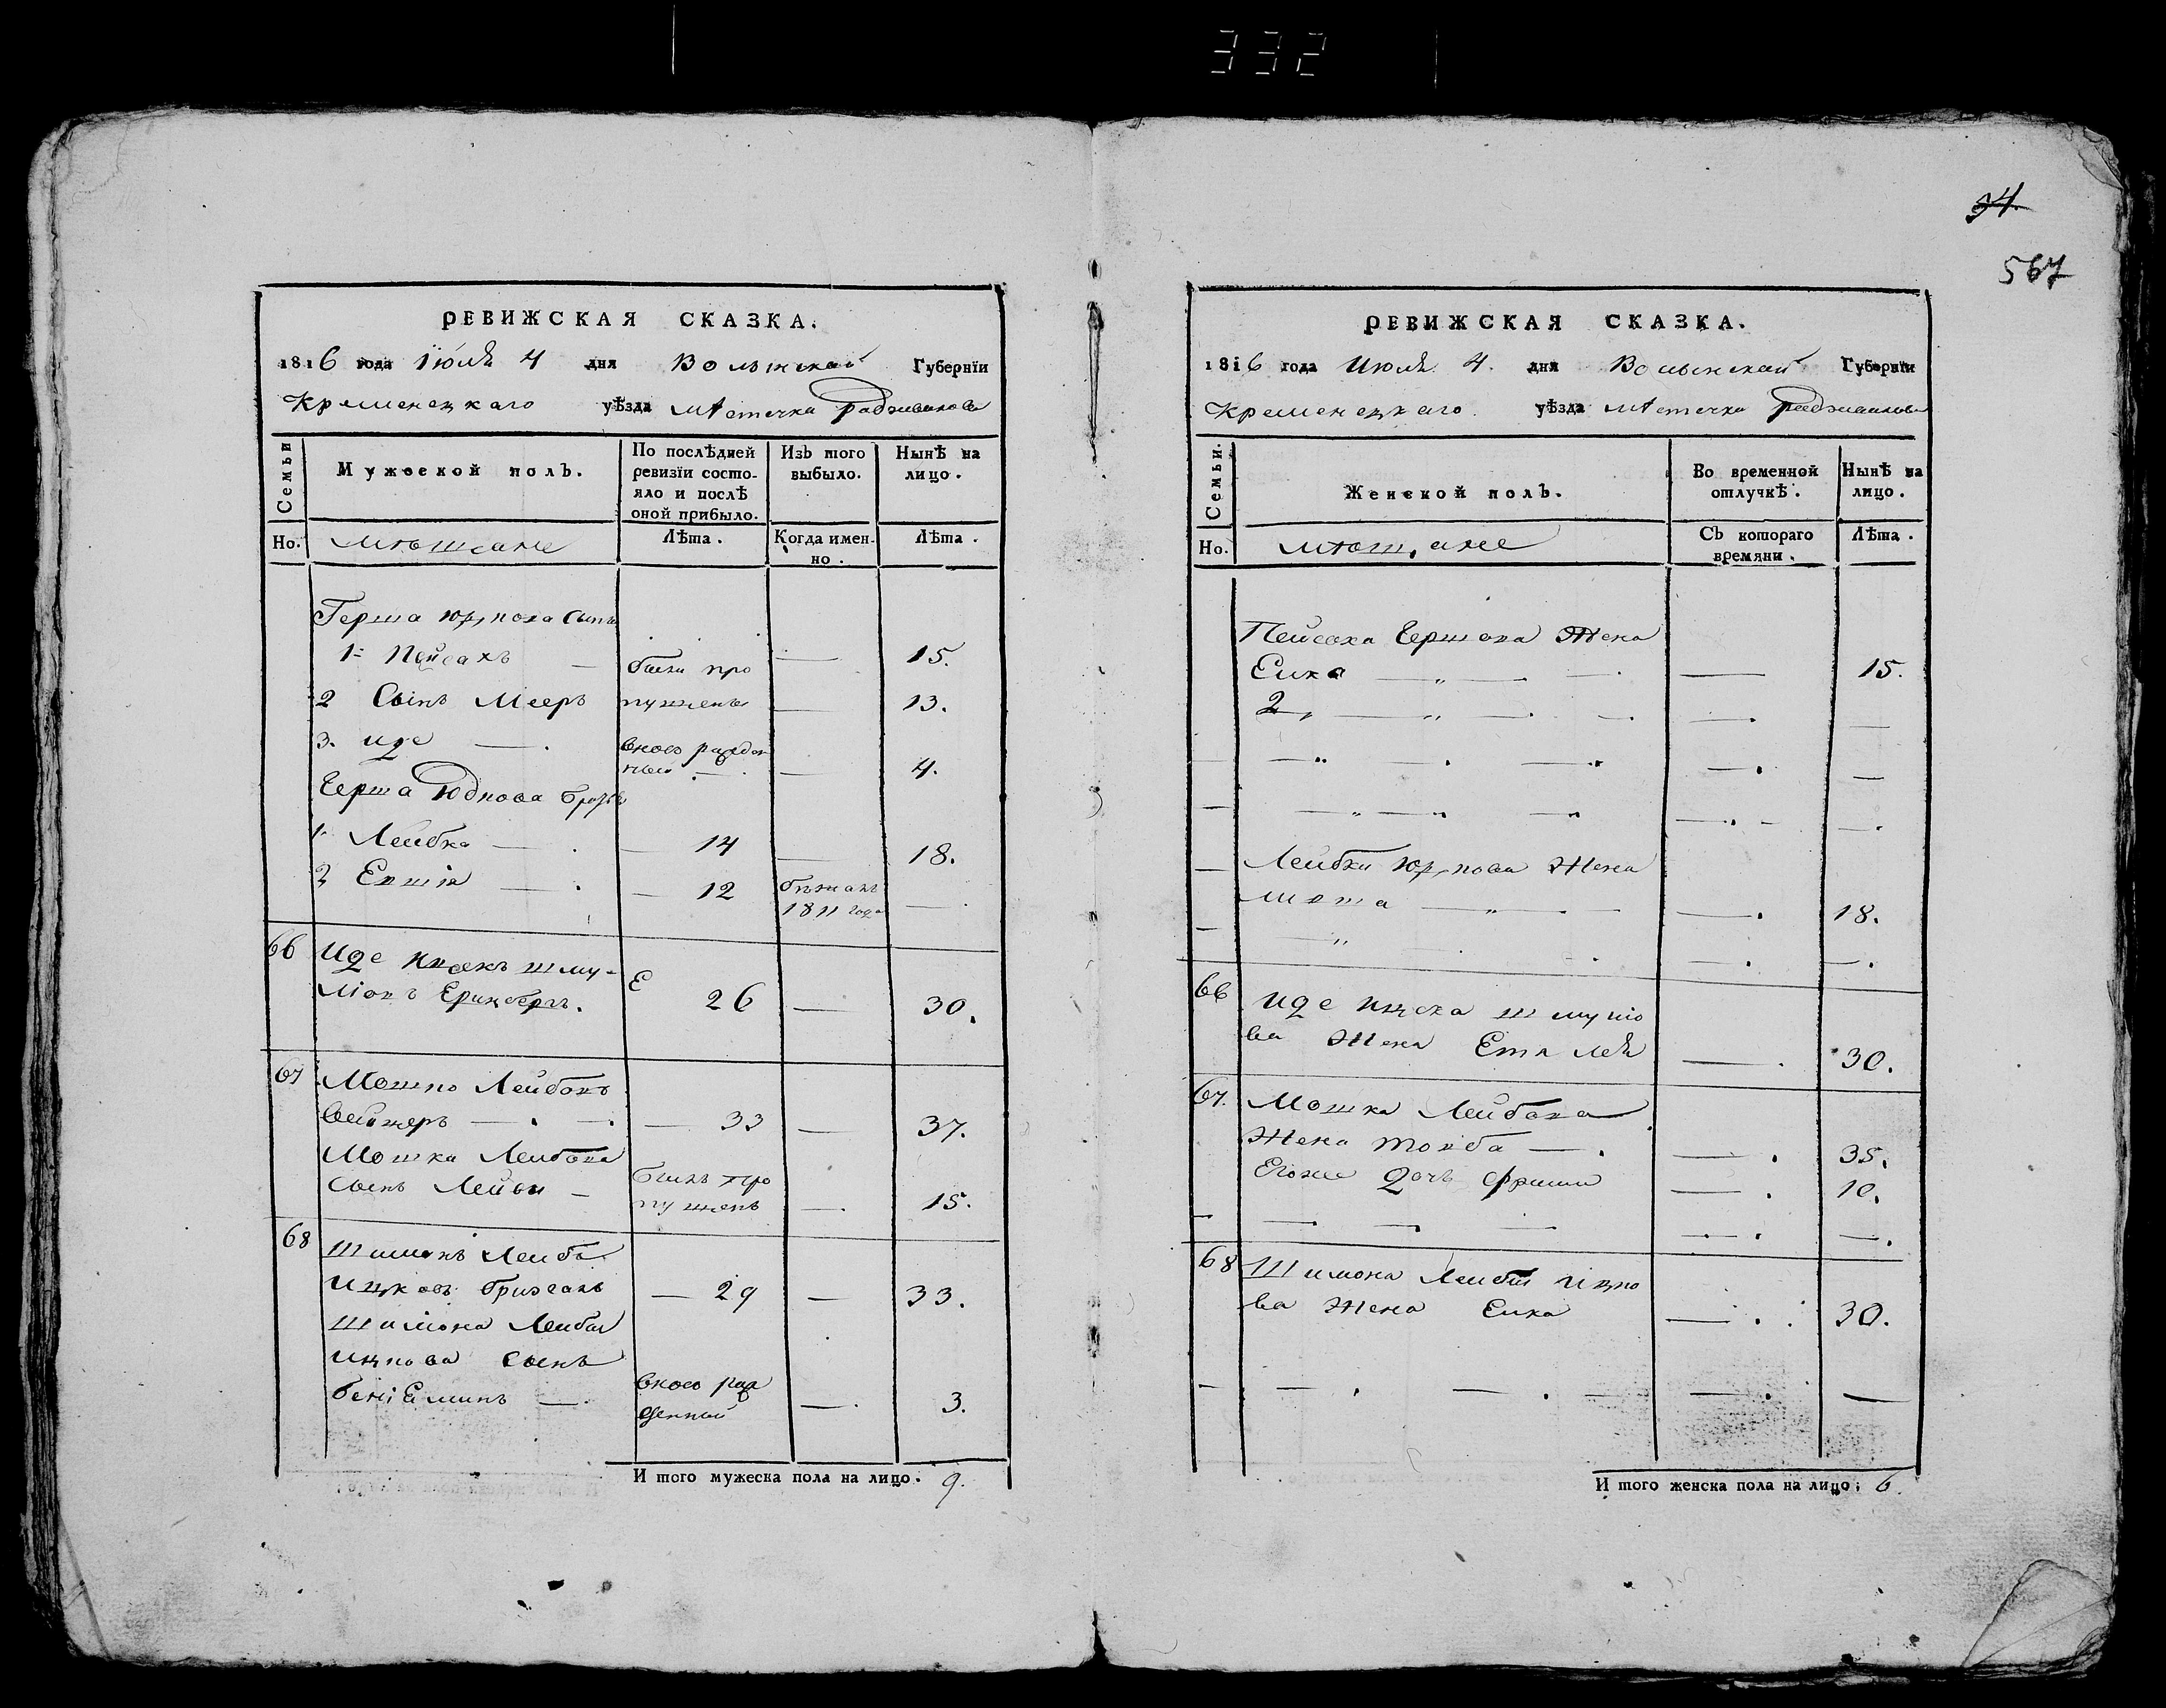 332
94.
567
РЕВИЖСКАЯ СКАЗКА.
1816 года Іюля 4 дня Волынской Губернїи
Кременецкаго уѣзда мѣстечка Радзивилова
Семьи
Мужеской полъ.
По послѣдней ревизїи состояло и послѣ оной прибыло.
Изъ того выбыло.
Нынѣ на лицо.
Но.
мѣщане
Лѣта.
Когда именно.
Лѣта.
Герша Юдкова сынъ
1 Пейсахъ — были про — 15.
2 Сынъ Мееръ пущены — 13.
3. Иде — . вново рожденый — 4.
Герша Юдкова братъ
1 Лейбка — 14 — 18.
2 — 12 бѣжалъ 1811 года —
66 Иде Ицекъ Шму-
26 — 30.
67 Мошко Лейбовъ
— 33 — 37.
Мошка Лейбова
сынъ Лейби — былъ про
пущенъ — 15.
68 Шимонъ Лейба
Ицковъ — 29 — 33.
Шимона Лейби
Ицкова сынъ
Беніеминъ — вново рож
денный — 3.
И того мужеска пола на лицо. 9.
РЕВИЖСКАЯ СКАЗКА.
1816 года Июля 4. дня Волынской Губернїи
Кременецкаго уѣзда мѣстечка Радзивилова
Семьи.
Женской полъ.
Во временной отлучкѣ.
Нынѣ на лицо.
Но.
мѣщане
Съ котораго времяни.
Лѣта.
Пейсаха Гершова Жена
— 15.
2
Лейбки Юдкова Жена
— 18.
66 Иде Ицека Шмулио
ва Жена — 30.
67. Мошка Лейбова
Жена Товба — 35.
Егоже Дочь — 10.
68 Шимона Лейби Ицко
ва Жена — 30.
И того женска пола на лицо: 6.